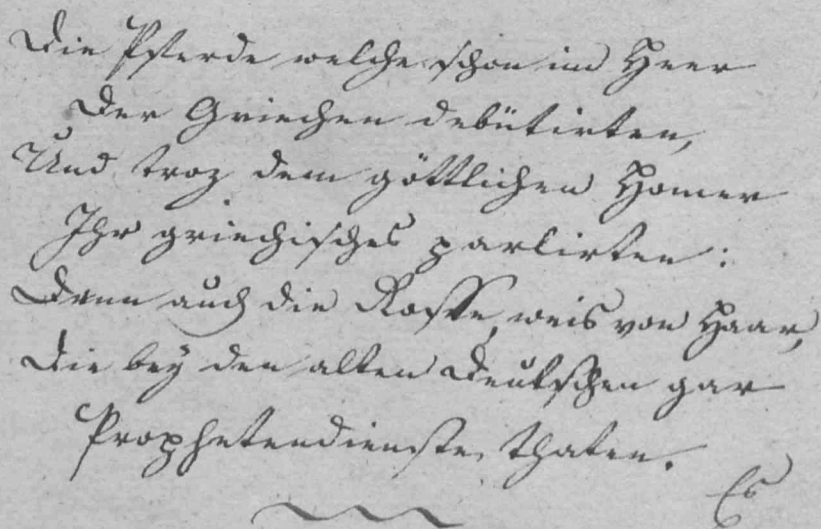 Die Pferde welche schon im Heer
Der Griechen debütirten,
Und troz dem göttlichen Homer
Ihr griechisches parlirten:
Denn auch die Rosse, weis von Haar,
Die bey den alten Deutschen gar
Prophetendienste thaten.
Es